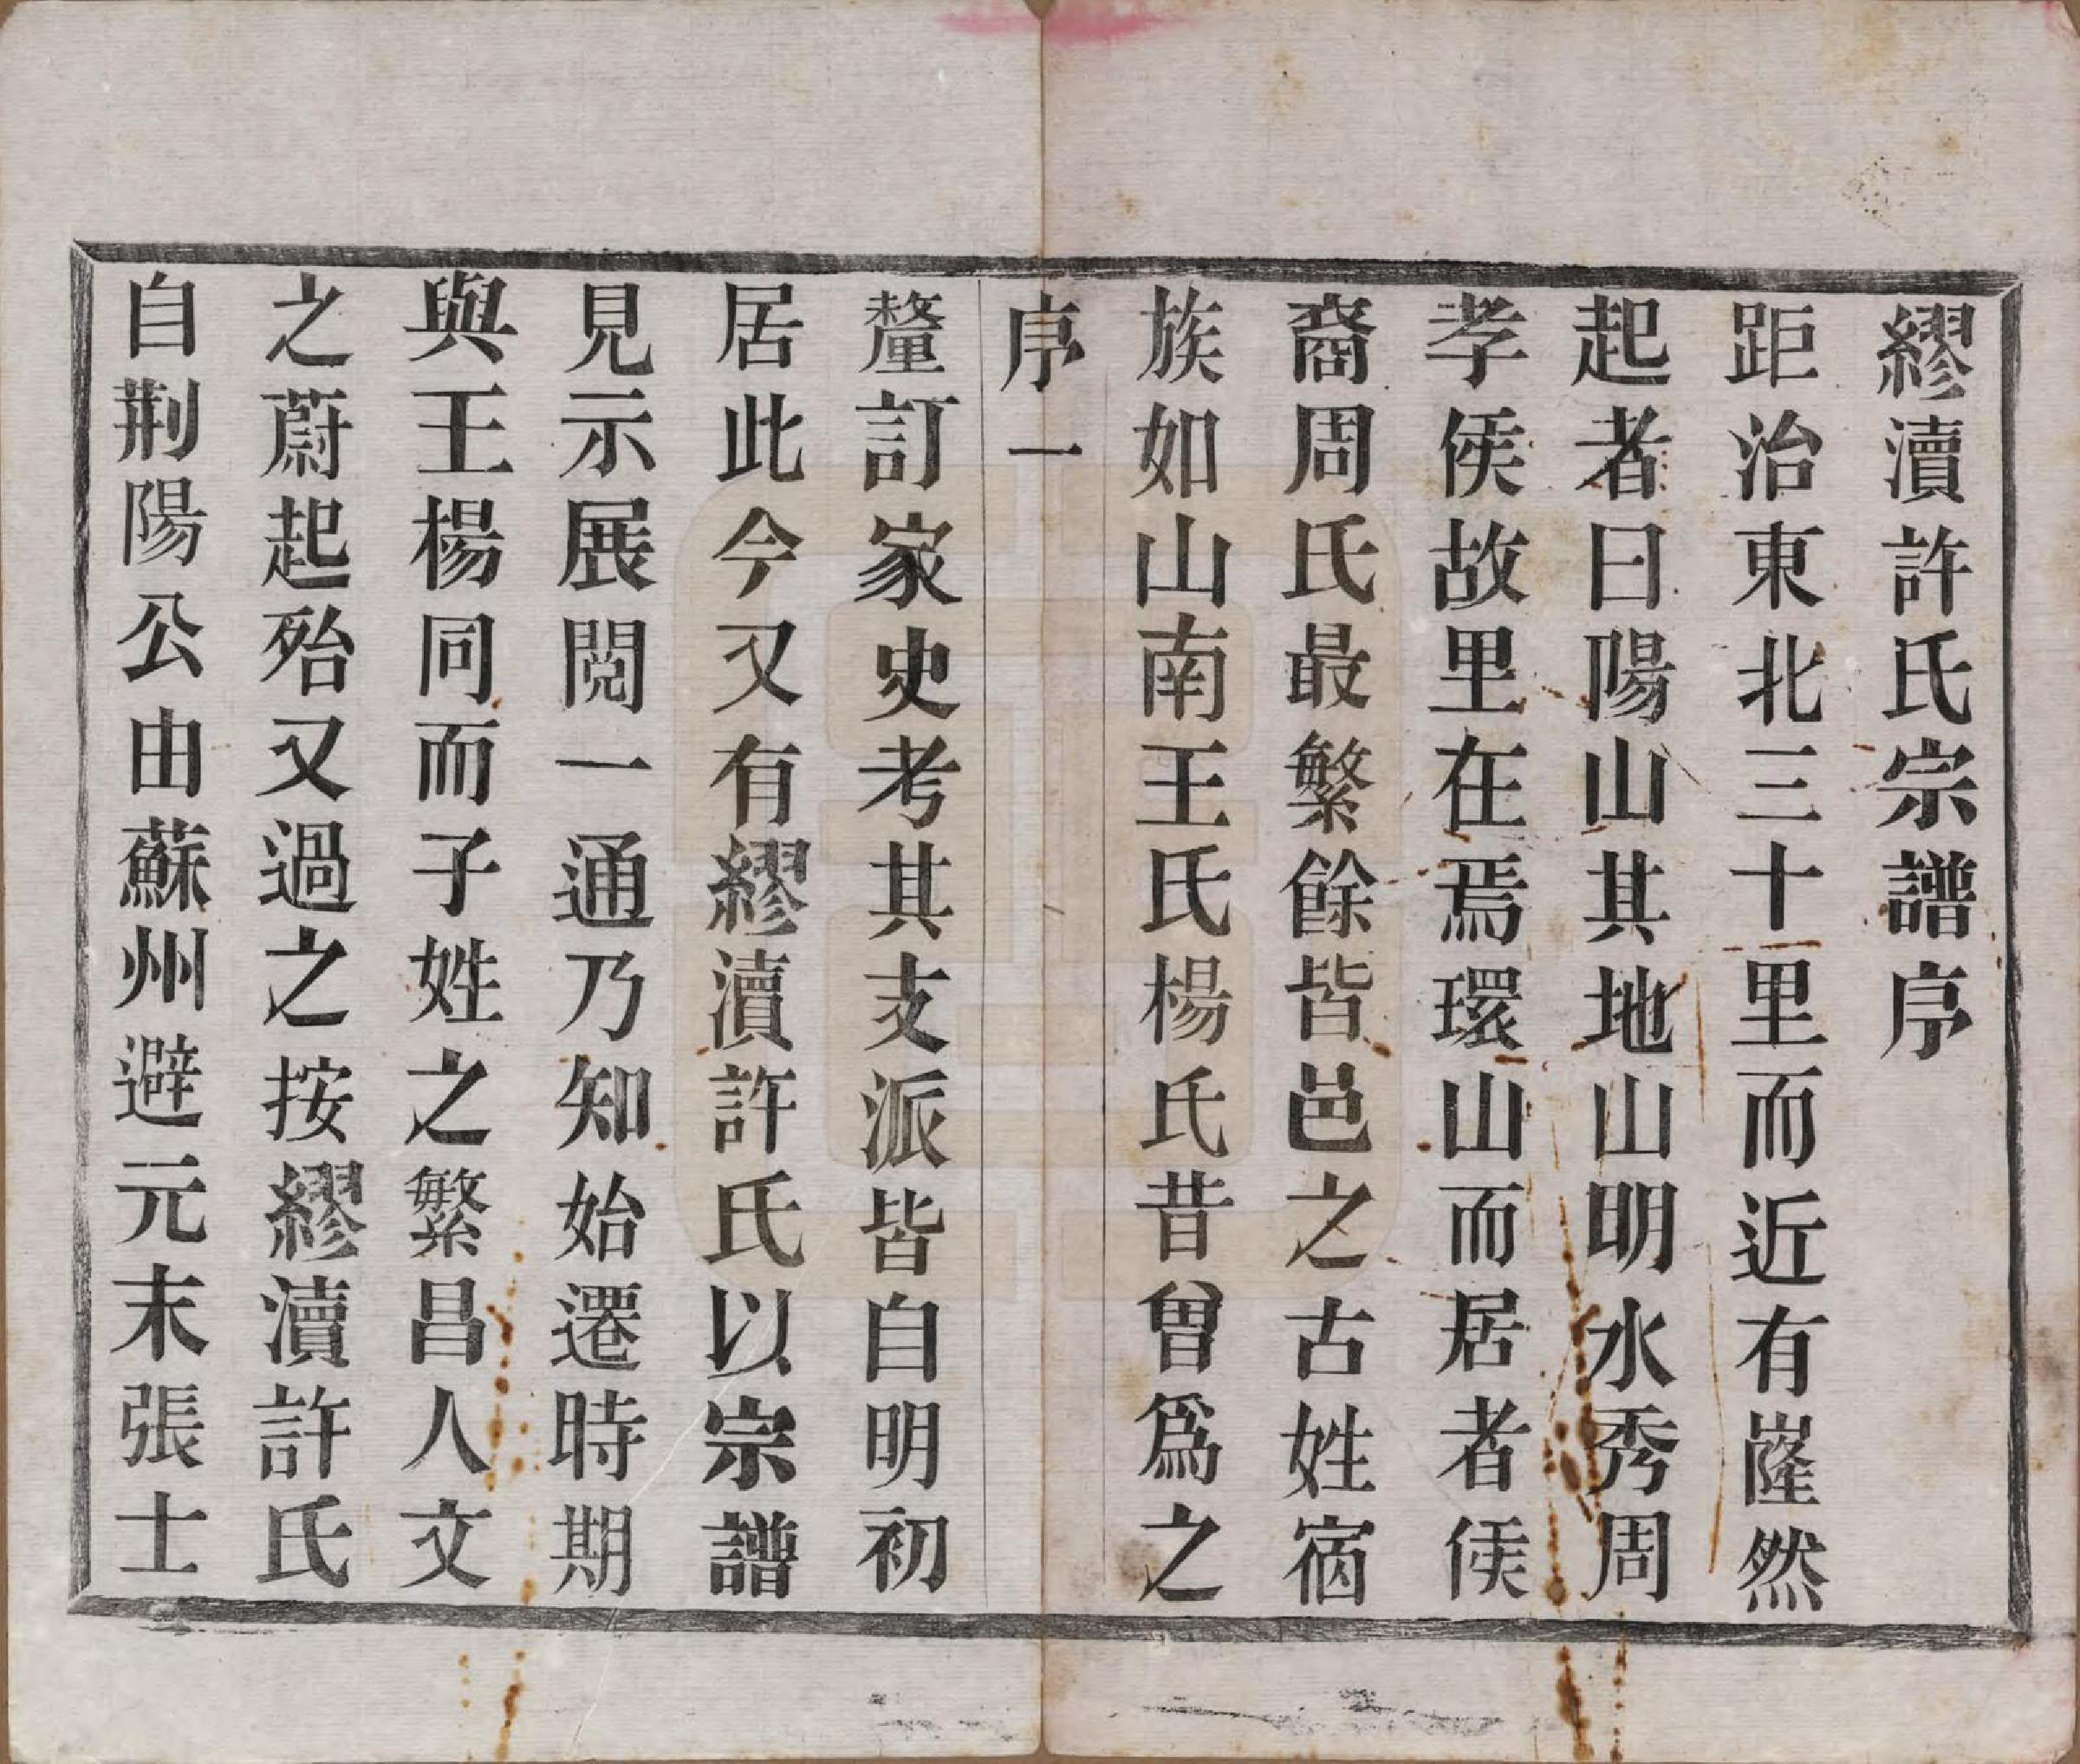 繆瀆許氏宗譜序
距治東北三十里而近有嶐然
起者曰陽山其地山明水秀周
孝侯故里在焉環山而居者侯
裔周氏最繁餘皆邑之古姓宿
族如山南王氏楊氏昔曾爲之
序一
釐訂家史考其支派皆自明初
居此今又有繆瀆許氏以宗譜
見示展閱一通乃知始遷時期
與王楊同而子姓之繁昌人文
之蔚起殆又過之按繆瀆許氏
自荆陽公由蘇州避元末張士